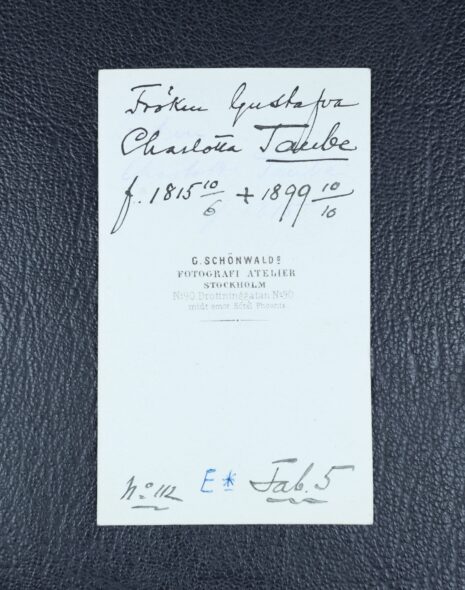 Fröken Gustafva
Charlotta Taube
f. 1815 10/6 + 1899 10/10
G. SCHÖNWALDS
FOTOGRAFI ATELIER
STOCKHOLM
No 90 Drottninggatan No 90
midt emot Hôtel Phoenix.
No 112 E* Tab. 5